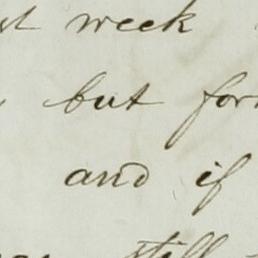 week
but
and if
still